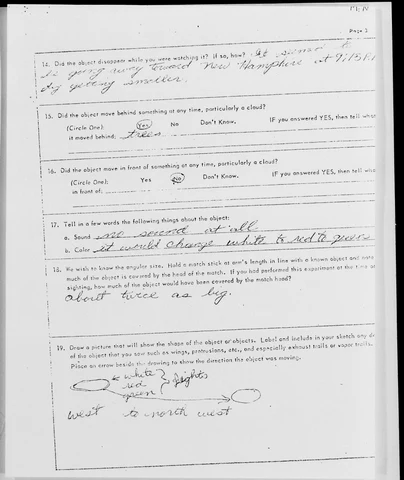 Page 3
14. Did the object disappear while you were watching it? If so, how? It seemed to
be going away toward New Hampshire at 9:15 P.
by getting smaller.
15. Did the object move behind something at any time, particularly a cloud?
(Circle One): Yes No Don't Know. IF you answered YES, then tell what
it moved behind: trees
16. Did the object move in front of something at any time, particularly a cloud?
(Circle One): Yes No Don't Know. IF you answered YES, then tell what
in front of:
17. Tell in a few words the following things about the object:
a. Sound no sound at all
b. Color it would change white to red to green
18. We wish to know the angular size. Hold a match stick at arm's length in line with a known object and note
much of the object is covered by the head of the match. If you had performed this experiment at the time of
sighting, how much of the object would have been covered by the match head?
about twice as big.
19. Draw a picture that will show the shape of the object or objects. Label and include in your sketch any de
of the object that you saw such as wings, protrusions, etc., and especially exhaust trails or vapor trails.
Place an arrow beside the drawing to show the direction the object was moving.
white
red lights
green
west to north west